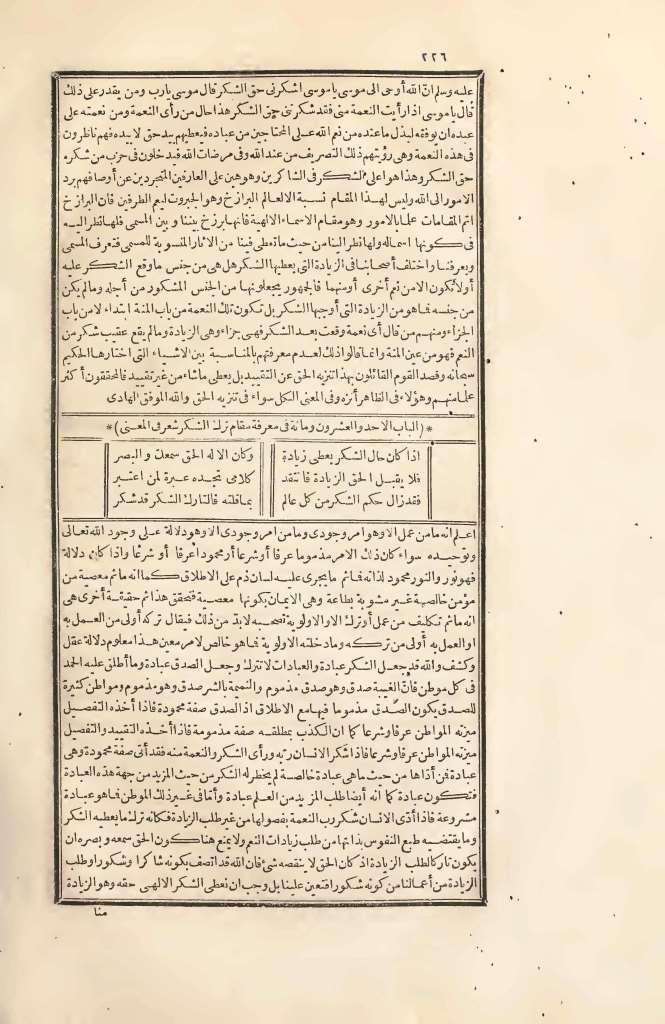 ٢٢٦
عليه وسلم انّ الله أوحى الى موسى ياموسى اشكرنى حق الشكر قال موسى يارب ومن يقدر على ذلك
قال ياموسى اذا رأيت النعمة منى فقد شكرتنى حق الشكر هذا حال من رأى النعمة ومن نعمته على
عبده ان يوفقه لبذل ماعنده من نعم الله على المحتاجين من عباده فيعطيهم بيد حق لابيده فهم ناظرون
فى هذه النعمة وهى رؤيتهم ذلك التصريف من عند الله وفى مرضات الله فيدخلون فى حزب من شكره
حق الشكر وهذا هو اعلى الشكر فى الشاكرين وهو هين على العارفين المتجردين عن أوصافهم برد
الامور الى الله وليس لهذا المقام نسبة الا لعالم البرازخ وهو الجبروت ليعم الطرفين فان البرازخ
اتم المقامات علما بالامور وهو مقام الاسماء الالهية فانها برزخ بيننا وبين المسمى فلها نظر اليه
فى كونها اسماله ولها نظر الينا من حيث ماتعطى فينا من الاثار المنسوبة للمسمى فتعرف المسمى
وبعرفنا واختلف أصحابنا فى الزيادة التى يعطيها الشكر هل هى من جنس ماوقع الشكر عليه
أولا تكون الا من نعم أخرى أومنهما فالجمهور يجعلونها من الجنس المشكور من أجله ومالم يكن
من جنسه فماهو من الزيادة التى أوجبها الشكر بل تكون تلك النعمة من باب المنة ابتداء لا من باب
الجزاء ومنهم من قال أى نعمة وقعت بعد الشكر فهى جزاء وهى الزيادة ومالم يقع عقيب شكر من
النعم فهو من عين المنة وانما قالوا ذلك لعدم معرفتهم بالمناسبة بين الاشياء التى اختارها الحكيم
سبحانه وقصد القوم القائلون بهذا تنزيه الحق عن التقييد بل يعطى ماشاء من غير تقييد فالمحققون أكثر
علما منهم وهؤلاء فى الظاهر أنزه وفى المعنى الكل سواء فى تنزيه الحق والله الموفق الهادى
*(الباب الاحد والعشرون ومائة فى معرفة مقام ترك الشكر شعر فى المعنى)*
اذا كان حال الشكر يعطى زيادة وكان الاله الحق سمعك والبصر
فلا يقبل الحق الزيادة فانتقد كلامى تجده عبرة لمن اعتبر
فقد زال حكم الشكر من كل عالم بما قلته فالتارك الشكر قد شكر
اعلم انه مامن عمل الا وهو امر وجودى ومامن امر وجودى الا وهو دلالة على وجود الله تعالى
وتوحيده سواء كان ذلك الامر مذموما عرفا أو شرعا أو محمودا عرفا أو شرعًا واذا كان دلالة
فهو نور والنور محمود لذاته فمائم مايجرى عليه لسان ذم على الاطلاق كما انه ماثم معصية من
مؤمن خالصة غير مشوبة بطاعة وهى الايمان بكونها معصية فتحقق هذا ثم حقيقة أخرى هى
انه ماثم تكليف من عمل أو ترك الا والاولوية تصحبه لابدّ من ذلك فيقال تركه أولى من العمل به
او العمل به أولى من تركه ومادخلته الاولوية فماهو خالص لامر معين هذا معلوم دلالة عقل
وكشف والله قد جعل الشكر عبادة والعبادات لاتترك وجعل الصدق عبادة وماأطلق عليه الحمد
فى كل موطن فانّ الغيبة صدق وهو صدق مذموم والنميمة بالشر صدق وهو مذموم ومواطن كثيرة
للصدق يكون الصدق مذموما فيها مع الاطلاق اذ الصدق صفة محمودة فاذا أخذه التفصيل
ميزته المواطن عرفا وشرعا كما ان الكذب بمطلقه صفة مذمومة فاذا أخذه التقييد والتفصيل
ميزته المواطن عرفا وشرعا فاذا شكر الانسان ربه ورأى الشكر والنعمة منه فقد أتى صفة محمودة وهى
عبادة فمن أدّاها من حيث ماهى عبادة خالصة لم يخطر له الشكر من حيث المزيد من جهة هذه العبادة
فتكون عبادة كما أنه أيضا طلب المزيد من العلم عبادة وأمّا فى غير ذلك الموطن فماهو عبادة
مشروعة فاذا أدّى الانسان شكر رب النعمة بفصولها من غير طلب الزيادة فكأنه ترك مايعطيه الشكر
ومايقتضيه طبع النفوس بذاتها من طلب زيادات النعم ولايمنع هنا كون الحق سمعه وبصره ان
يكون تاركا لطلب الزيادة اذ كان الحق لاينقصه شئ فان الله قد اتصف بكونه شاكرا وشكورا وطلب
الزيادة من أعمالنا من كونه شكورا فتعين علينا بل وجب ان نعطى الشكر الالهى حقه وهو الزيادة
منا